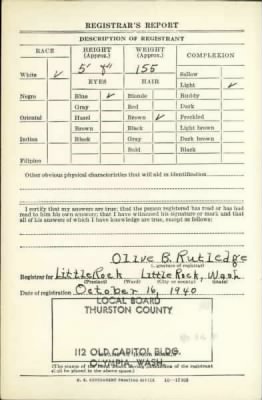 REGISTRAR'S REPORT
DESCRIPTION OF REGISTRANT
RACE HEIGHT (Approx.) WEIGHT (Approx.) COMPLEXION
5' 8" 155 Sallow
White ✓ EYES HAIR Light ✓
Negro Blue ✓ Blonde Ruddy
Gray Red Dark
Oriental Hazel Brown ✓ Freckled
Brown Black Light brown
Indian Black Gray Dark brown
Bald Black
Filipino
Other obvious physical characteristics that will aid in identification
I certify that my answers are true; that the person registered has read or has had
read to him his own answers; that I have witnessed his signature or mark and that
all of his answers of which I have knowledge are true, except as follows:
Olive B. Rutledge
(Signature of registrar)
Registrar for Little Rock Little Rock, Wash.
(Precinct) (Ward) (City or county) (State)
Date of registration October 16, 1940
LOCAL BOARD
THURSTON COUNTY
112 OLD CAPITOL BLDG.
OLYMPIA, WASH.
(The stamp of the Local Board having jurisdiction of the registrant
shall be placed in the above space.)
U. S. GOVERNMENT PRINTING OFFICE